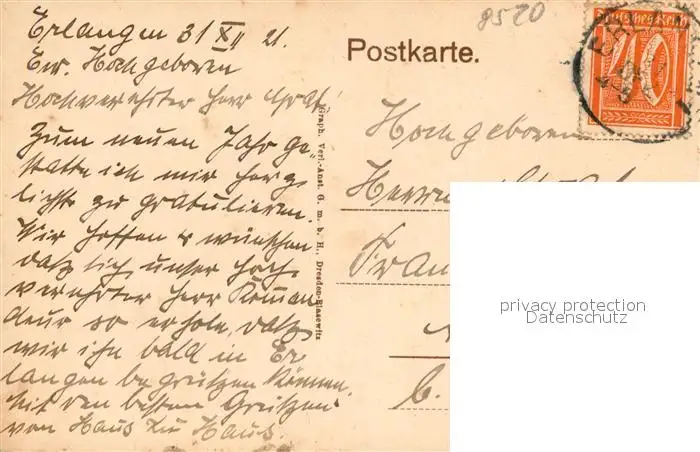 8520
Erlangen 31 XII 21.
Ew. Hochgeboren
Hochverehrter Herr Graf!
Zum neuen Jahr ge
statte ich mir herz
lichst zu gratulieren.
Wir hoffen & wünschen
daß sich unser hoch
verehrter Herr Koman
deur so erhole, daß
wir ihn bald in Er
langen begrüßen können.
Mit den besten Grüßen
von Haus zu Haus.
Graph. Verl.-Anst. G. m. b. H., Dresden-Blasewitz
Postkarte.
Deutsches Reich
40
ERLA
Hochgeboren
Herrn
b.
privacy protection
Datenschutz